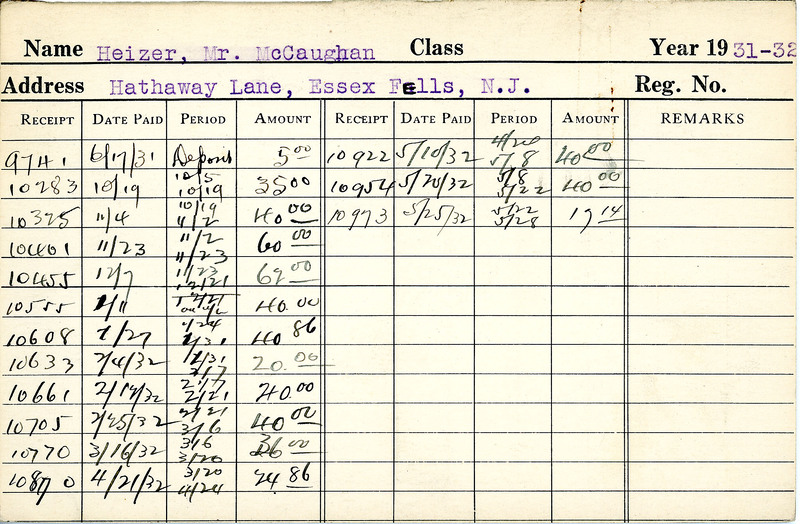 Name Heizer, Mr. McCaughan Class Year 19 31-32
Address Hathaway Lane, Essex Fells, N.J. Reg. No.
RECEIPT DATE PAID PERIOD AMOUNT RECEIPT DATE PAID PERIOD AMOUNT REMARKS
9741 6/17/31 Deposit 5 00 10922 5/10/32 4/24 5/8 40 00
10283 10/19 10/5 10/19 35 00 10954 5/20/32 5/8 5/22 40 00
10325 11/4 10/19 11/2 40 00 10973 5/25/32 5/22 5/28 17 14
10401 11/23 11/2 11/23 60 00
10455 12/7 11/23 12/21
10555 1/11 40.00
10608 1/27 1/24 1/31 40 86
10633 2/4/32 1/31 2/7 20.00
10661 2/7 2/21 40.00
10705 2/25/32 2/21 3/6 40 00
10770 3/16/32 3/6 3/20 00
10870 4/21/32 3/20 4/24 86